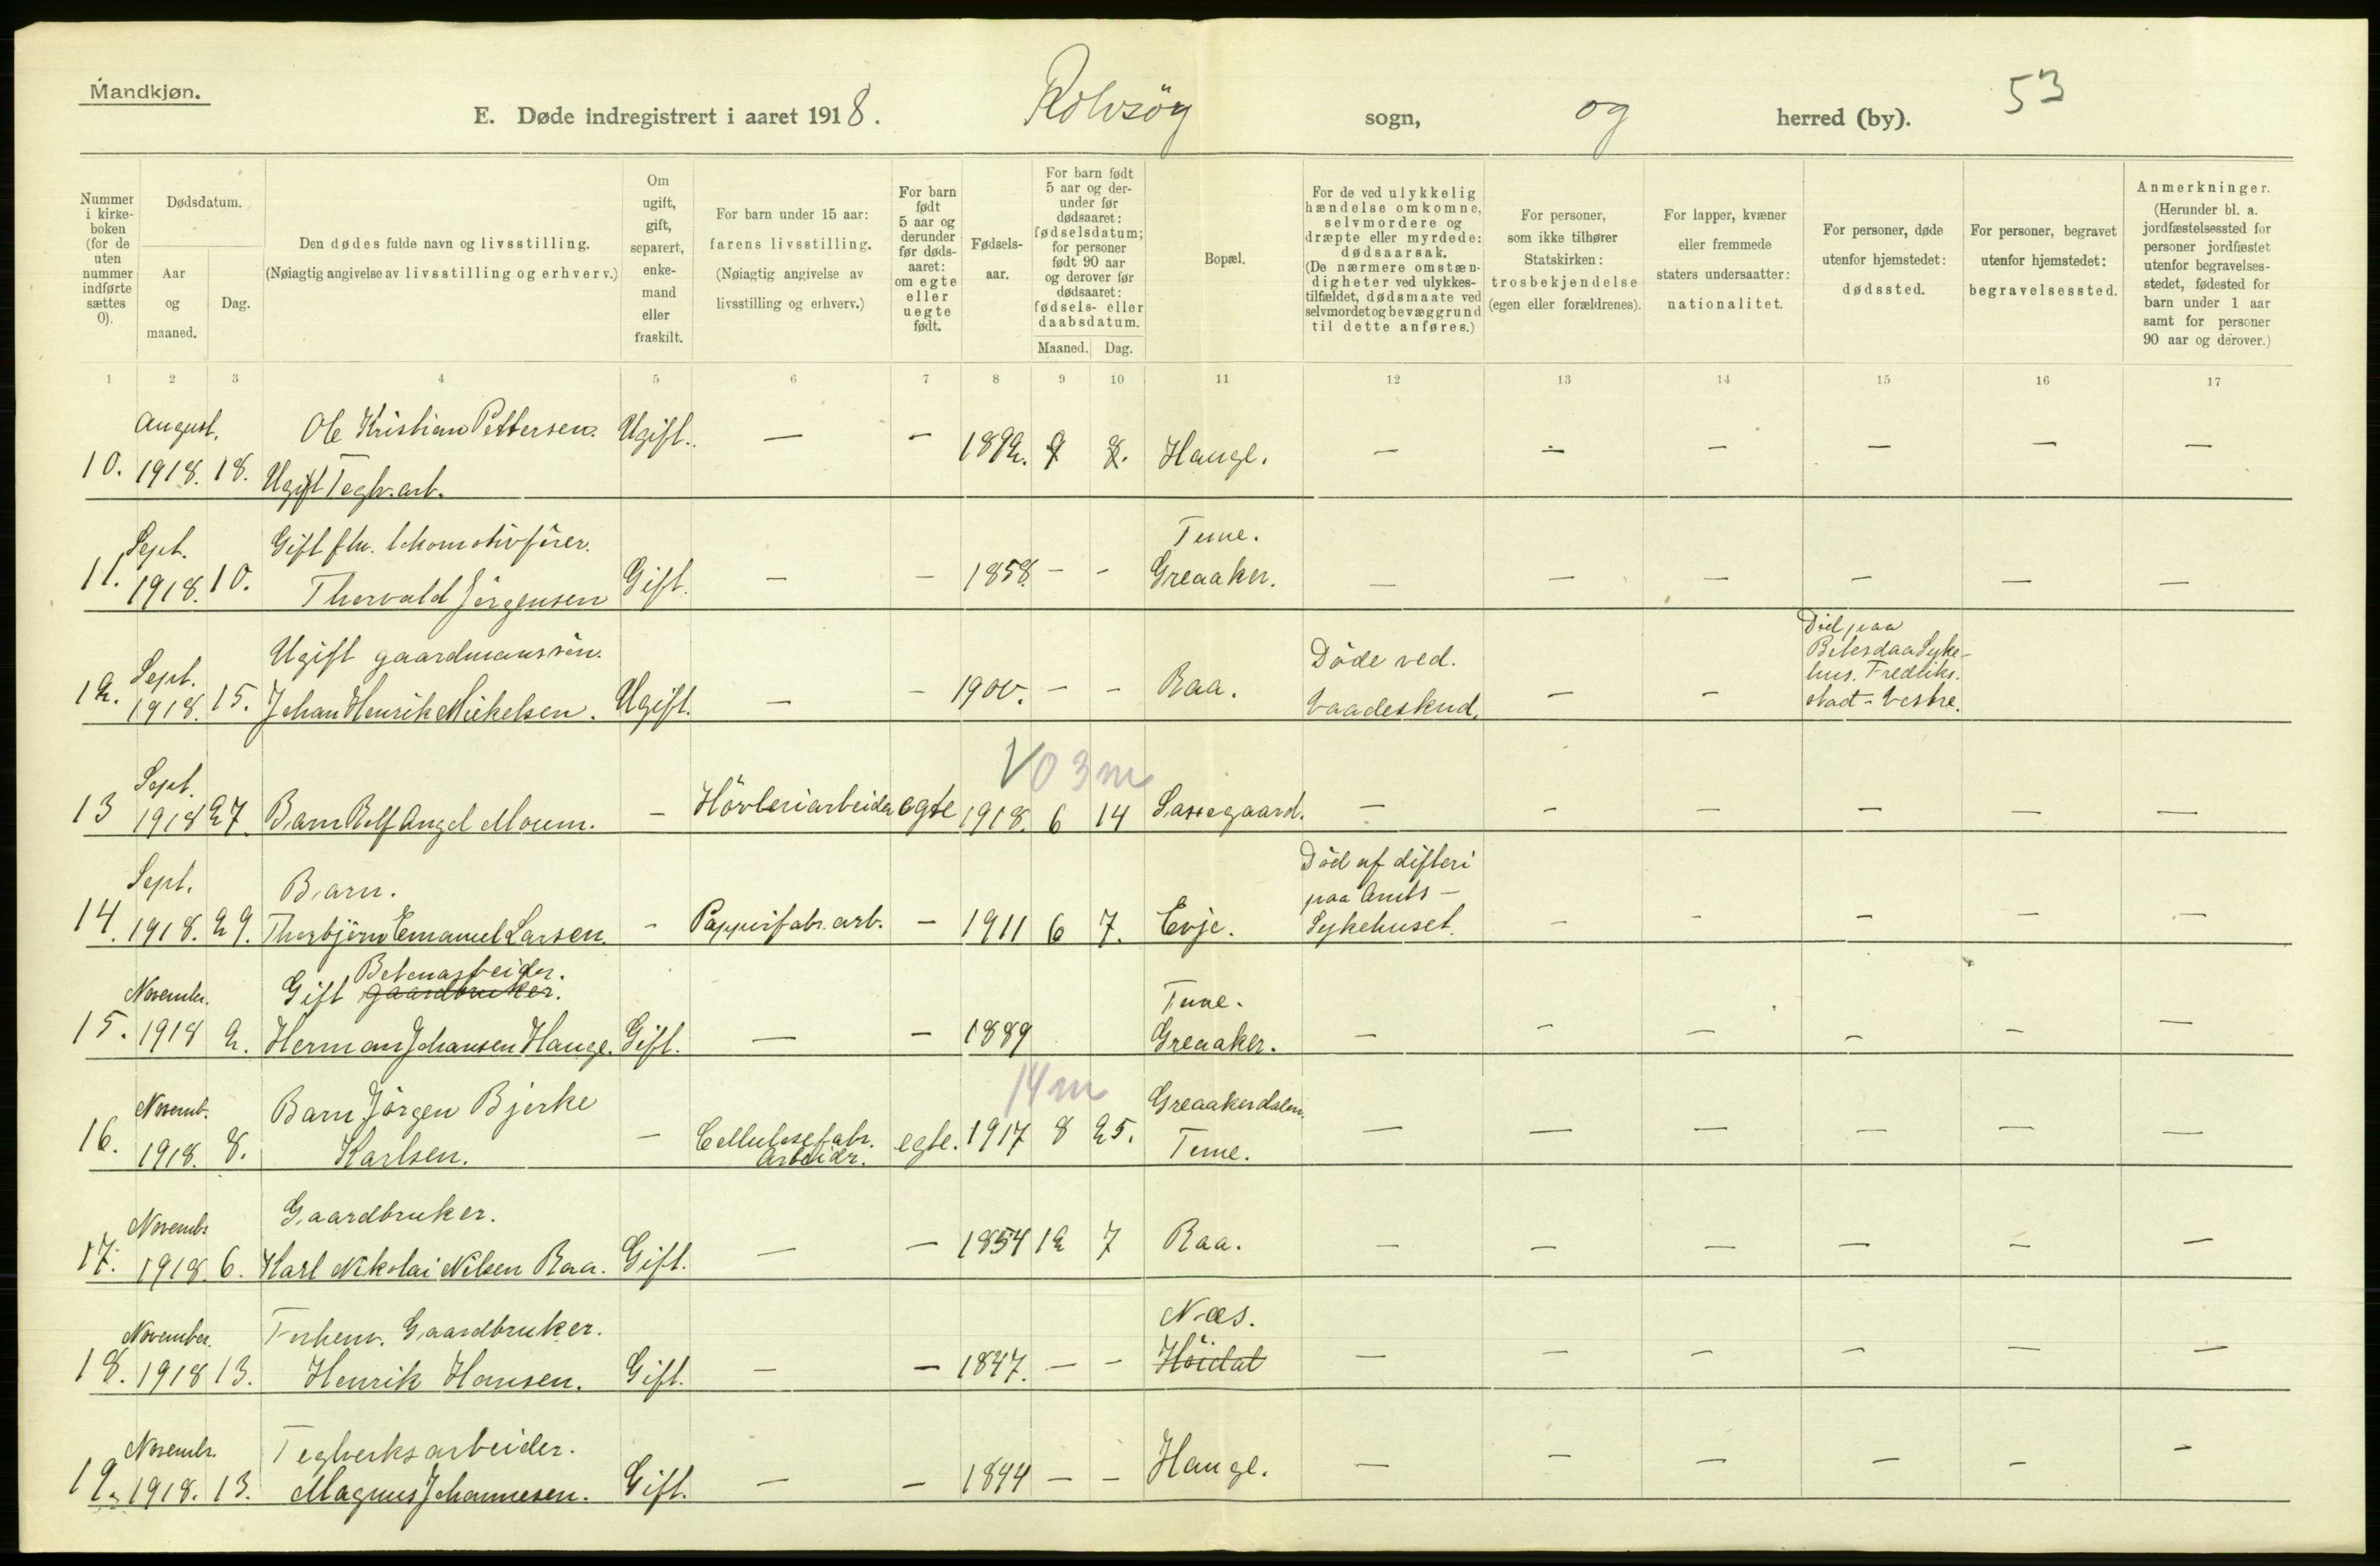 Mandkjøn.
E. Døde indregistrert i aaret 1918. Rolvsöy sogn, og herred (by). 53
Nummer i kirke-boken (for de uten nummer indførte sættes 0).
Dødsdatum.
Aar og maaned.
Dag.
Den dødes fulde navn og livsstilling.
(Nøiagtig angivelse av livsstilling og erhverv.)
Om ugift, gift, separert, enke-mand eller fraskilt.
For barn under 15 aar: farens livsstilling.
(Nøiagtig angivelse av livsstilling og erhverv.)
For barn født 5 aar og derunder før døds-aaret: om egte eller uegte født.
Fødsels-aar.
For barn født 5 aar og der-under før dødsaaret: fødselsdatum; for personer født 90 aar og derover før dødsaaret: fødsels- eller daabsdatum.
Maaned. Dag.
Bopæl.
For de ved ulykkelig hændelse omkomne, selvmordere og dræpte eller myrdede: dødsaarsak.
(De nærmere omstæn-digheter ved ulykkes-tilfældet, dødsmaate ved selvmordet og bevæggrund til dette anføres.)
For personer, som ikke tilhører Statskirken: trosbekjendelse (egen eller forældrenes).
For lapper, kvæner eller fremmede staters undersaatter: nationalitet.
For personer, døde utenfor hjemstedet: dødssted.
For personer, begravet utenfor hjemstedet: begravelsessted.
Anmerkninger.
(Herunder bl. a. jordfæstelsessted for personer jordfæstet utenfor begravelses-stedet, fødested for barn under 1 aar samt for personer 90 aar og derover.)
1 2 3 4 5 6 7 8 9 10 11 12 13 14 15 16 17
August. Ole Kristian Pettersen. Ugift. — — 1892. 9 8. Hauge. — — — — — —
10. 1918. 18. Ugift Teglv. arb.
Sept. Gift fhv. lokomotivförer. Tune.
11. 1918. 10. Thorvald Jörgensen Gift. — — 1858. — — Greaaker. — — — — — —
Sept. Ugift gaardmanssön. Döde ved. Död paa Betesdaa Syke-hus. Fredriks.
12. 1918. 15. Johan Henrik Mikelsen. Ugift. — — 1900. — — Raa. Vaadeskud. — — stad - Vestre.
V 0 3 m
Sept.
13 1918 27. Barn Rolf Angel Moum. — Hövleriarbeider egte 1918. 6 14 Sassegaard. — — — — — —
Sept. Barn. Död af difteri paa Amts-
14. 1918. 29. Thorbjörn Emanuel Larsen. — Pappirfabr. arb. — 1911 6 7. Evje. Sykehuset. — — — — —
Betonarbeider.
Novembr. Gift gaardbruker. Tune.
15. 1918 2. Herman Johansen Hauge. Gift. — — 1889 Greaaker. — — — — — —
14 m
Novemb. Barn Jörgen Bjerke Greaakerdalen.
16. 1918. 8. Karlsen. — Cellulosefabr. Arbeidr. egte. 1917 8 25. Tune. — — — — — —
Novembr Gaardbruker.
17. 1918. 6. Karl Nikolai Nilsen Raa. Gift. — — 1854 12 7 Raa. — — — — — —
November. Forhenv. Gaardbruker. Næs.
18. 1918 13. Henrik Hansen. Gift. — — 1847. — — Höidal — — — — — —
Novembr. Teglverksarbeider.
19. 1918. 13. Magnus Johannesen. Gift. — — 1894 — — Hauge. — — — — — —